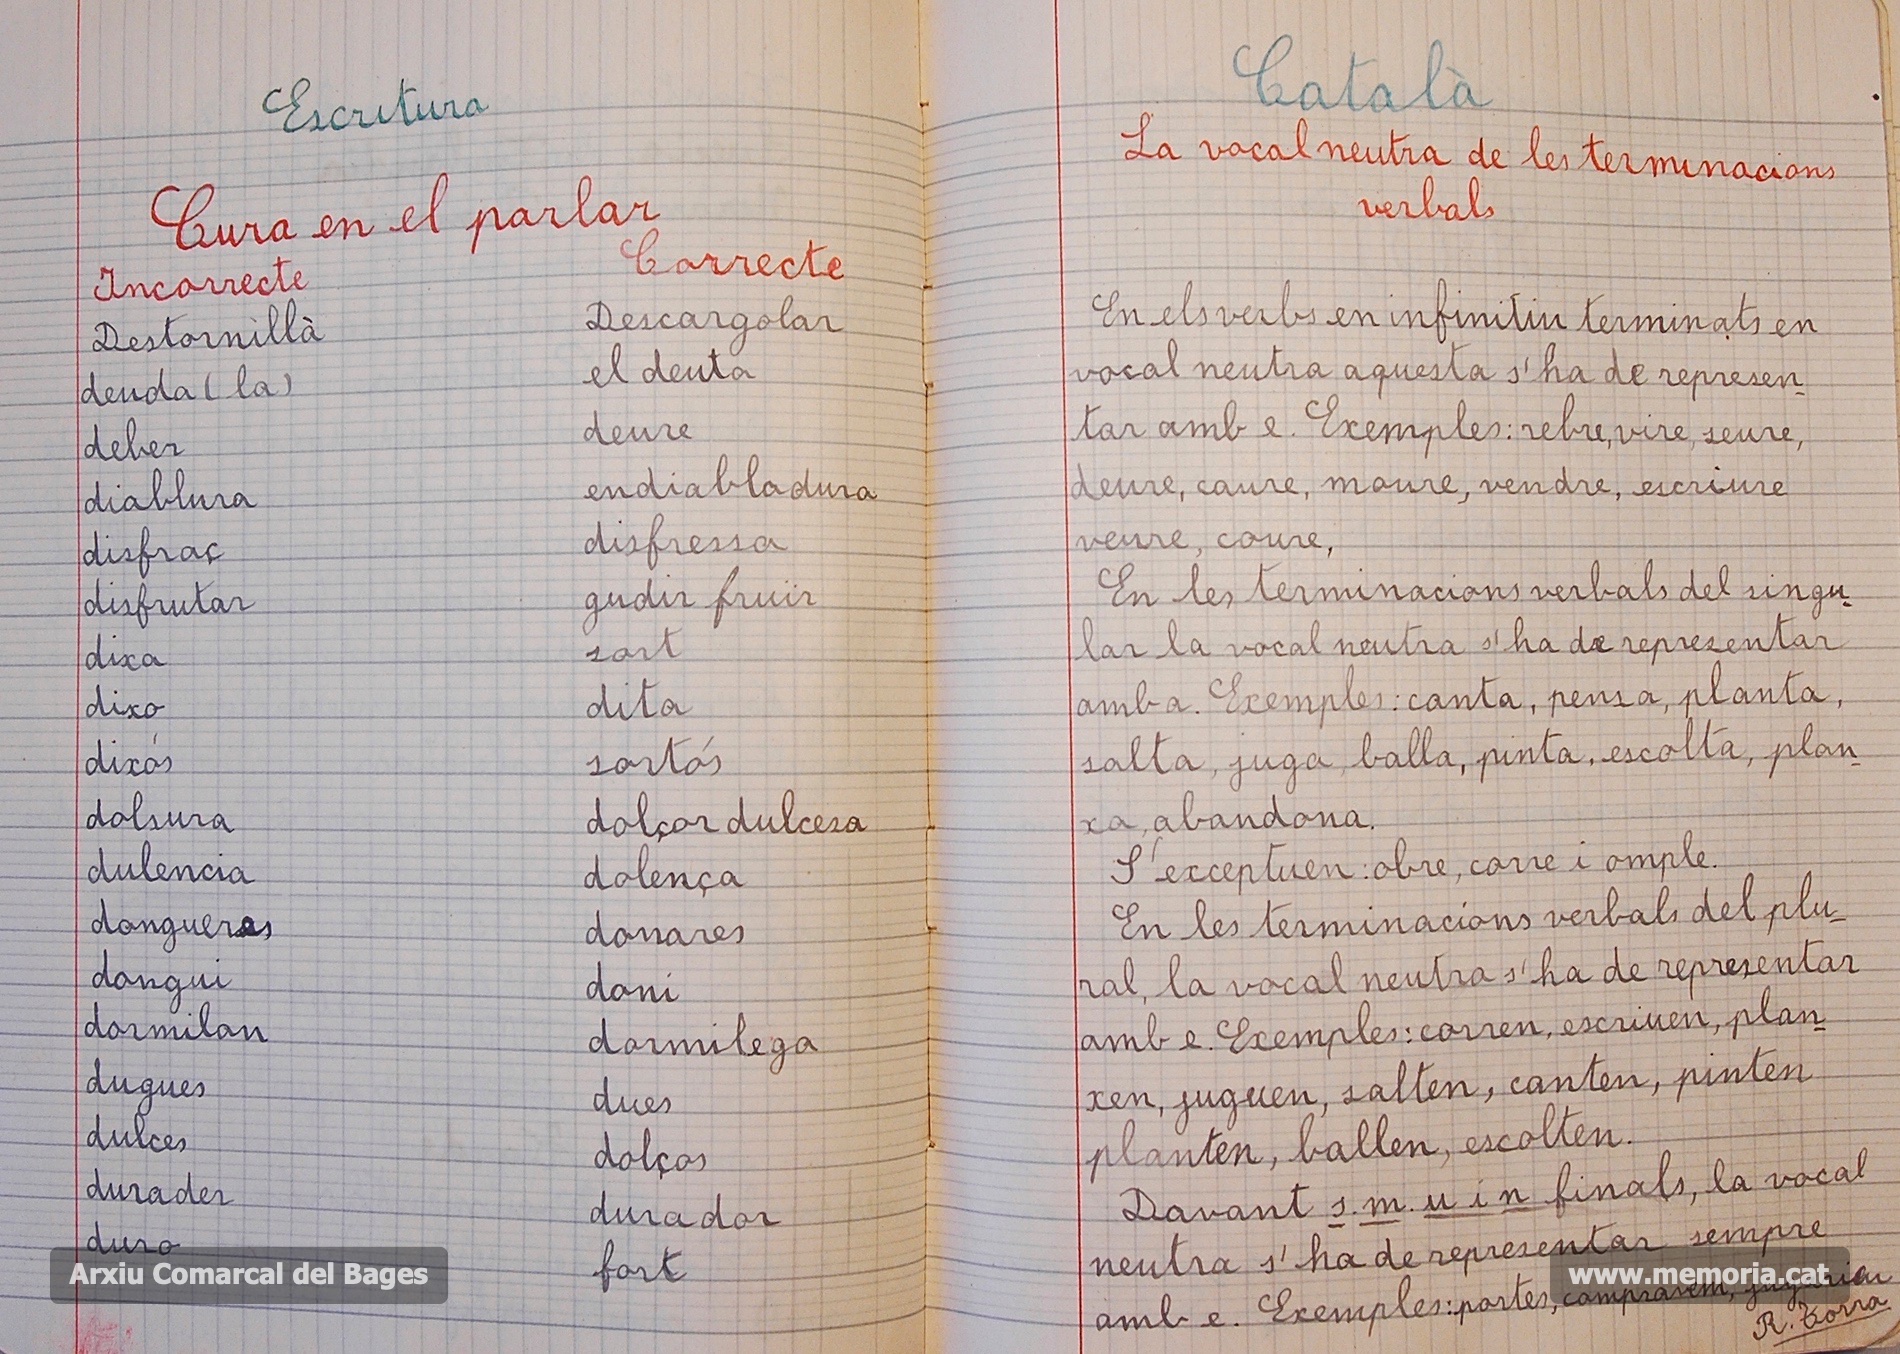 Escritura
Cura en el parlar
Incorrecte
Correcte
Destornillà
Descargolar
deuda (la)
el deuta
deber
deure
diablura
endiabladura
disfraç
disfressa
disfrutar
gudir fruir
dixa
sort
dixo
dita
dixós
sortós
dolsura
dolçor dulcesa
dulencia
dolença
dongueres
donares
dongui
doni
dormilan
dormilega
dugues
dues
dulces
dolços
durader
durador
duro
fort
Arxiu Comarcal del Bages
Català
La vocal neutra de les terminacions
verbals
En els verbs en infinitiu terminats en
vocal neutra aquesta s'ha de represen-
tar amb e. Exemples: rebre, vire, seure,
deure, caure, moure, vendre, escriure
veure, coure,
En les terminacions verbals del singu-
lar la vocal neutra s'ha de representar
amb a. Exemples: canta, pensa, planta,
salta, juga, balla, pinta, escolta, plan-
xa, abandona.
S'exceptuen: obre, corre i omple.
En les terminacions verbals del plu-
ral, la vocal neutra s'ha de representar
amb e. Exemples: corren, escriuen, plan-
xen, juguen, salten, canten, pinten
planten, ballen, escolten.
Davant s. m. u i n finals, la vocal
neutra s'ha de representar sempre
www.memoria.cat
amb e. Exemples: portes, compravem, jugarieu
R. Torra